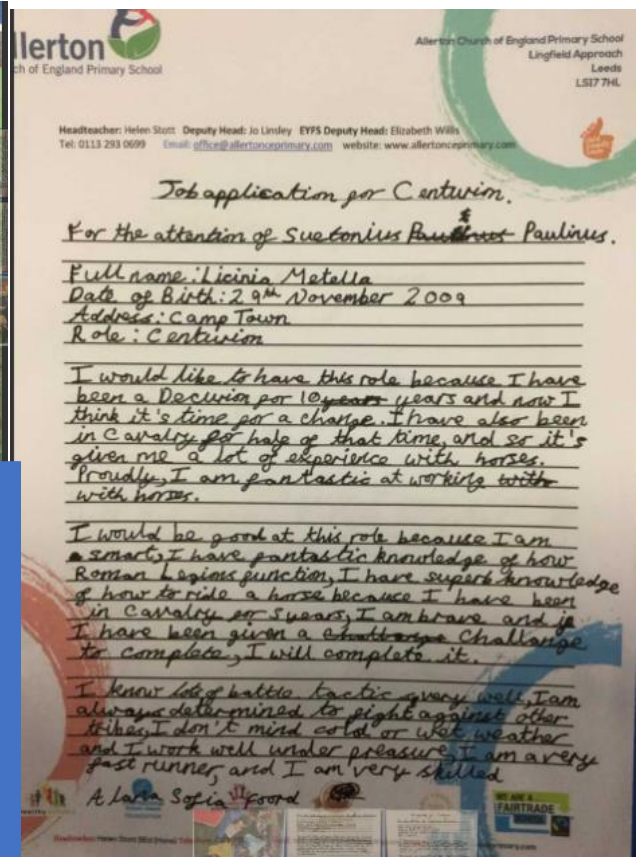 llerton
ch of England Primary School
Allerton Church of England Primary School
Lingfield Approach
Leeds
LS17 7HL
Headteacher: Helen Stott Deputy Head: Jo Linsley EYFS Deputy Head: Elizabeth Willis
Tel: 0113 293 0699 Email: office@allertonceprimary.com website: www.allertonceprimary.com
Job application for Centurion.
For the attention of Suetonius Paulinus.
Full name: Licinia Metella
Date of Birth: 29th November 2009
Address: Camp Town
Role: Centurion
I would like to have this role because I have
been a Decurion for 10 years years and now I
think it's time for a change. I have also been
in Cavalry for half of that time, and so it's
given me a lot of experience with horses.
Proudly, I am fantastic at working with
with horses.
I would be good at this role because I am
smart, I have fantastic knowledge of how
Roman Legions function, I have superb knowledge
of how to ride a horse because I have been
in Cavalry for 5 years, I am brave and if
I have been given a Challange
to complete, I will complete it.
I know lots of battle tactics very well, I am
always determined to fight against other
tribes, I don't mind cold or wet weather
and I work well under preasure, I am a very
fast runner, and I am very skilled
A Lana Sofia Foord
WE ARE A
FAIRTRADE